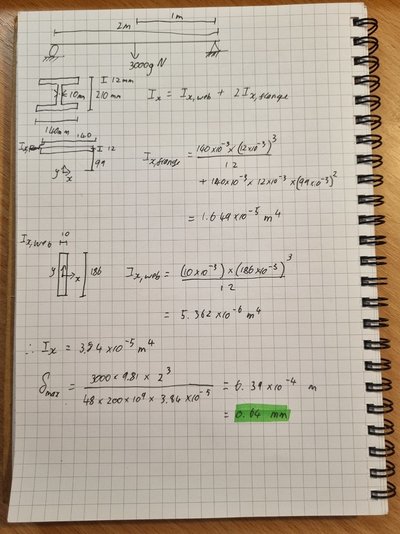 1m
2m
3000g N
I 12mm
10mm
210mm
140mm
I_x = I_x,web + 2I_x,flange
140
I 12
99
y
x
I_x,flange = 140×10^-3 × (12×10^-3)^3 / 12
+ 140×10^-3 × 12×10^-3 × (99×10^-3)^2
= 1.649×10^-5 m^4
I_x,web
10
y
x
186
I_x,web = (10×10^-3) × (186×10^-3)^3 / 12
= 5.362×10^-6 m^4
∴ I_x = 3.84×10^-5 m^4
δ_max = 3000 × 9.81 × 2^3 / 48 × 200×10^9 × 3.84×10^-5 = 6.39×10^-4 m
= 0.64 mm